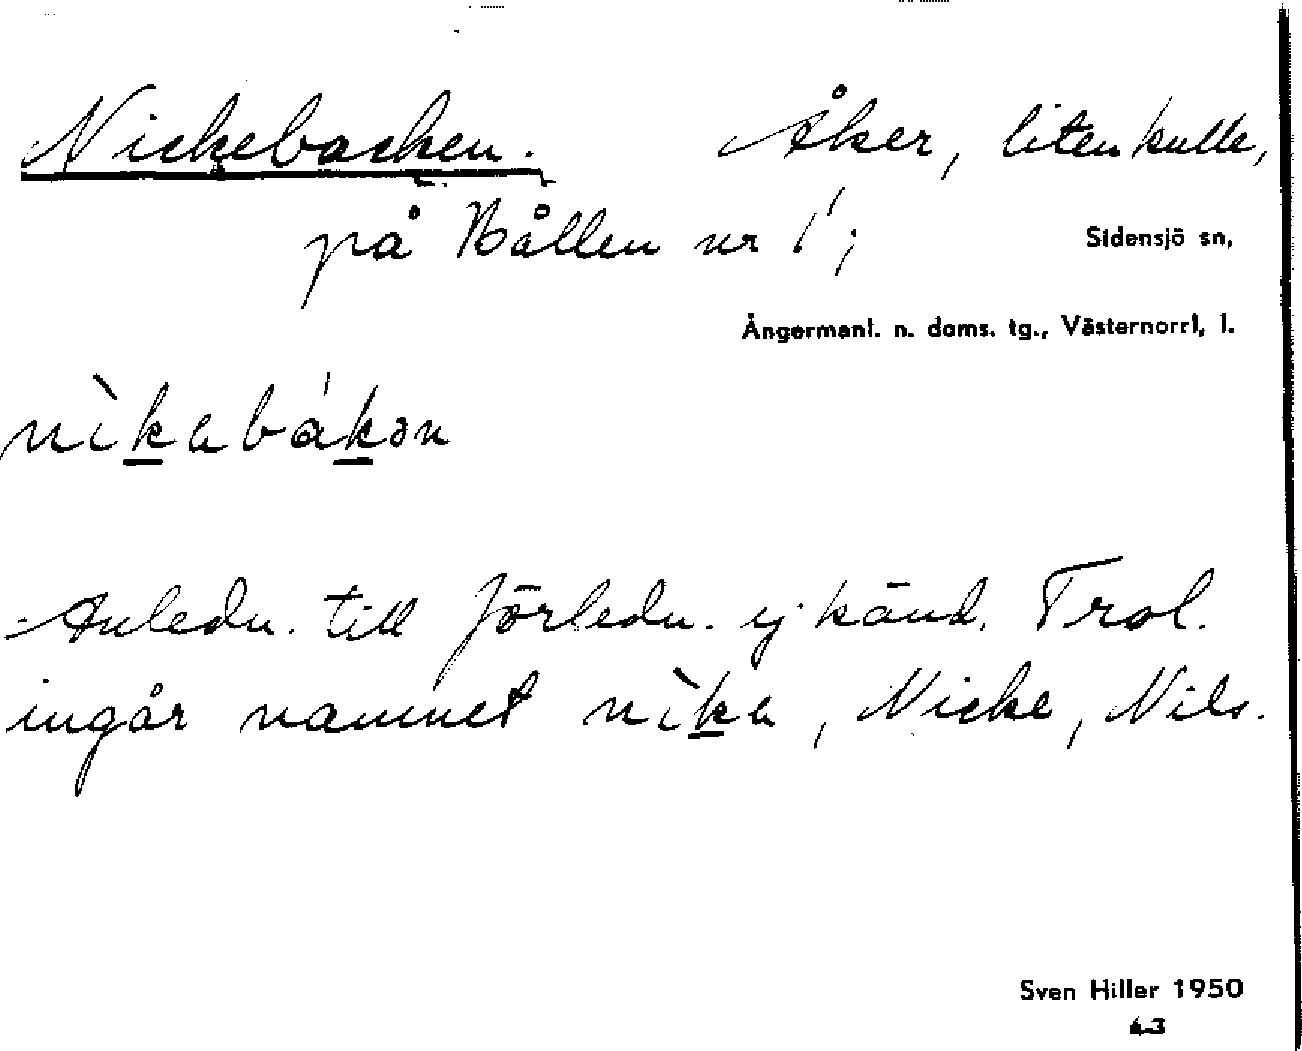 Nickebacken. Åker, liten kulle,
på Bållen nr 1;
Sidensjö sn,
Ångermanl. n. doms. tg., Västernorrl, l.
nìkabákən
Anledn. till förledn. ej känd. Trol.
ingår namnet nìka, Nicke, Nils.
Sven Hiller 1950